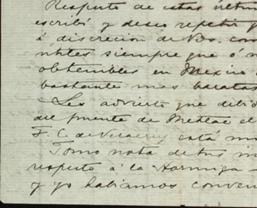 Respecto de estas últim
escribí y deseo repetir
á discreción de Vds. con
siempre que
obtenibles en Mexico
bastante mas baratas
Les advierto que debid
del puente de Metlac el
F. C. de Veracruz está
Tomo nota de sus
respecto á la Hormiga
y yo habíamos conven